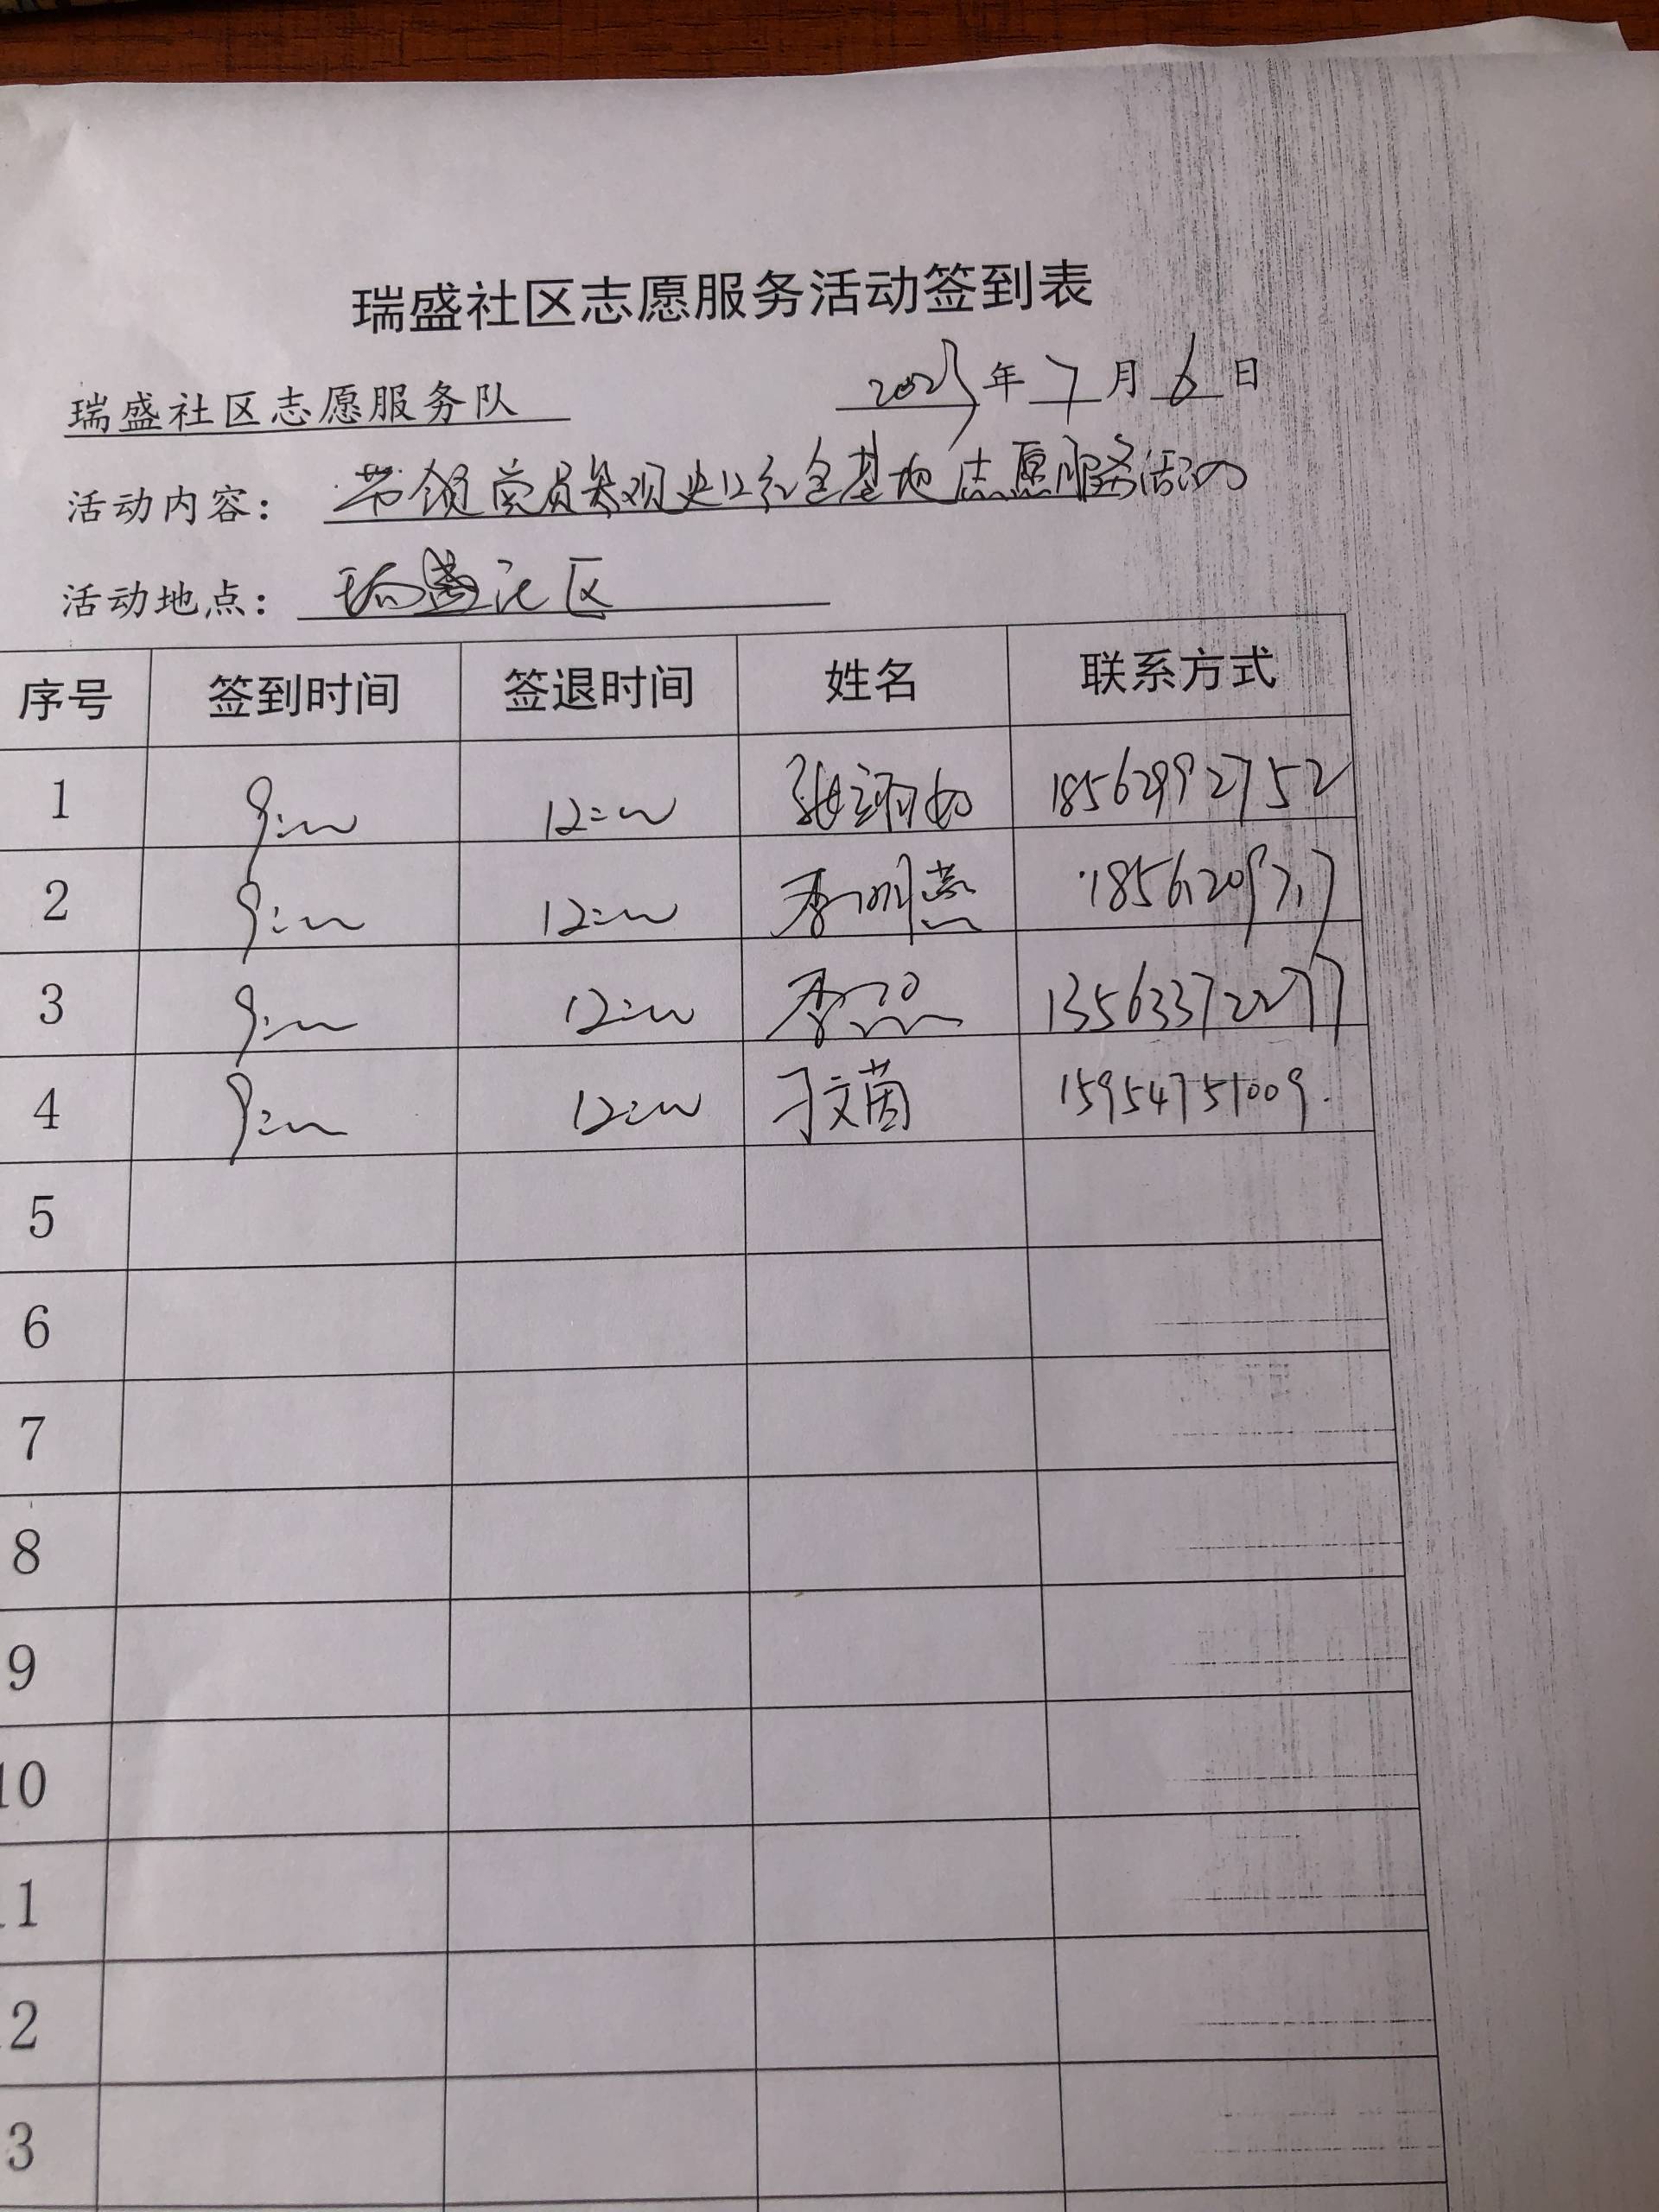 瑞盛社区志愿服务活动签到表
瑞盛社区志愿服务队 2023年7月6日
活动内容: 带领党员参观 红色基地志愿服务活动
活动地点: 瑞盛社区
序号 签到时间 签退时间 姓名 联系方式
1 9:00 12:00 18562992752
2 9:00 12:00 李明燕
3 9:00 12:00 13563372277
4 9:00 12:00 刁文茵 15954751009.
5
6
7
8
9
10
11
12
13